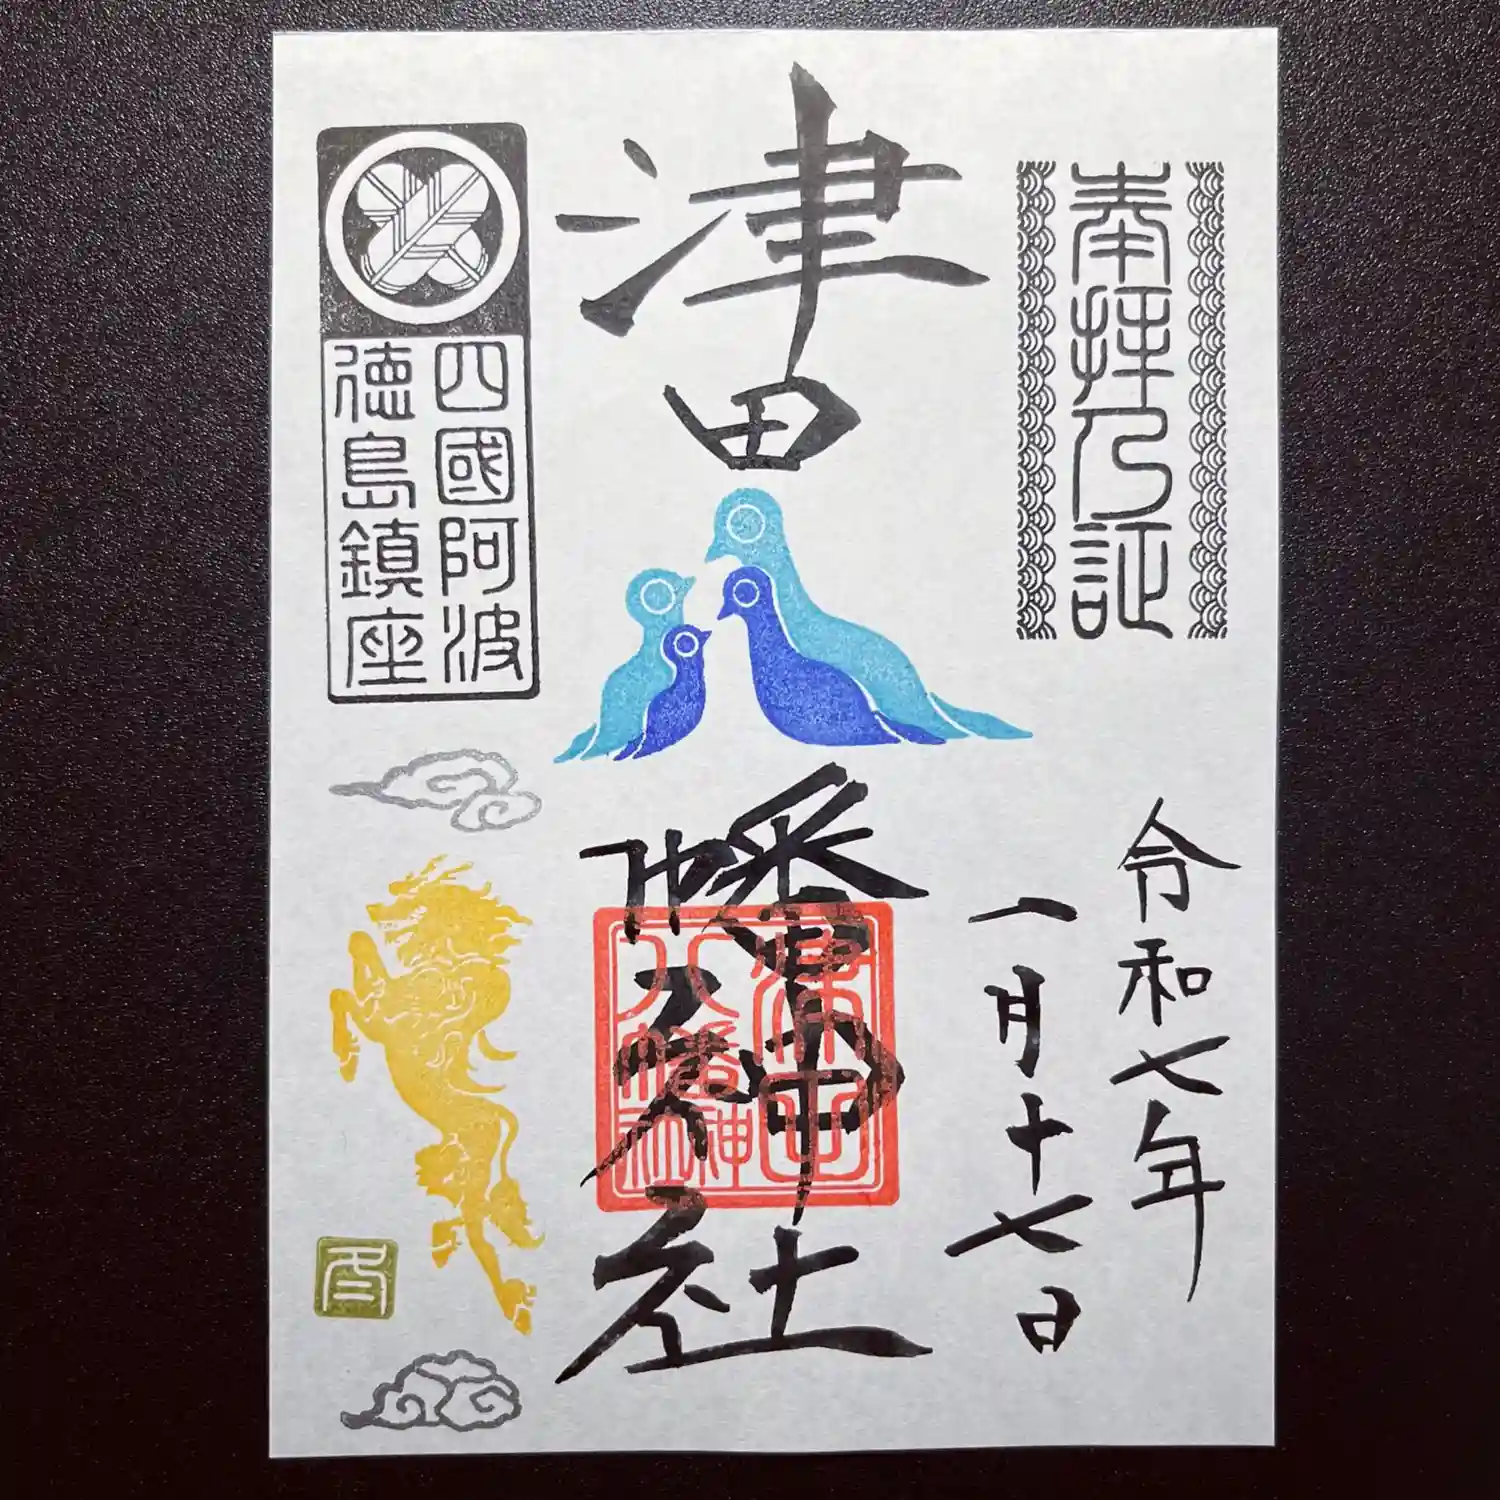 奉拝乃証
令和七年
一月十七日
津田八幡神社
津田
八幡神社
四國阿波
徳島鎮座